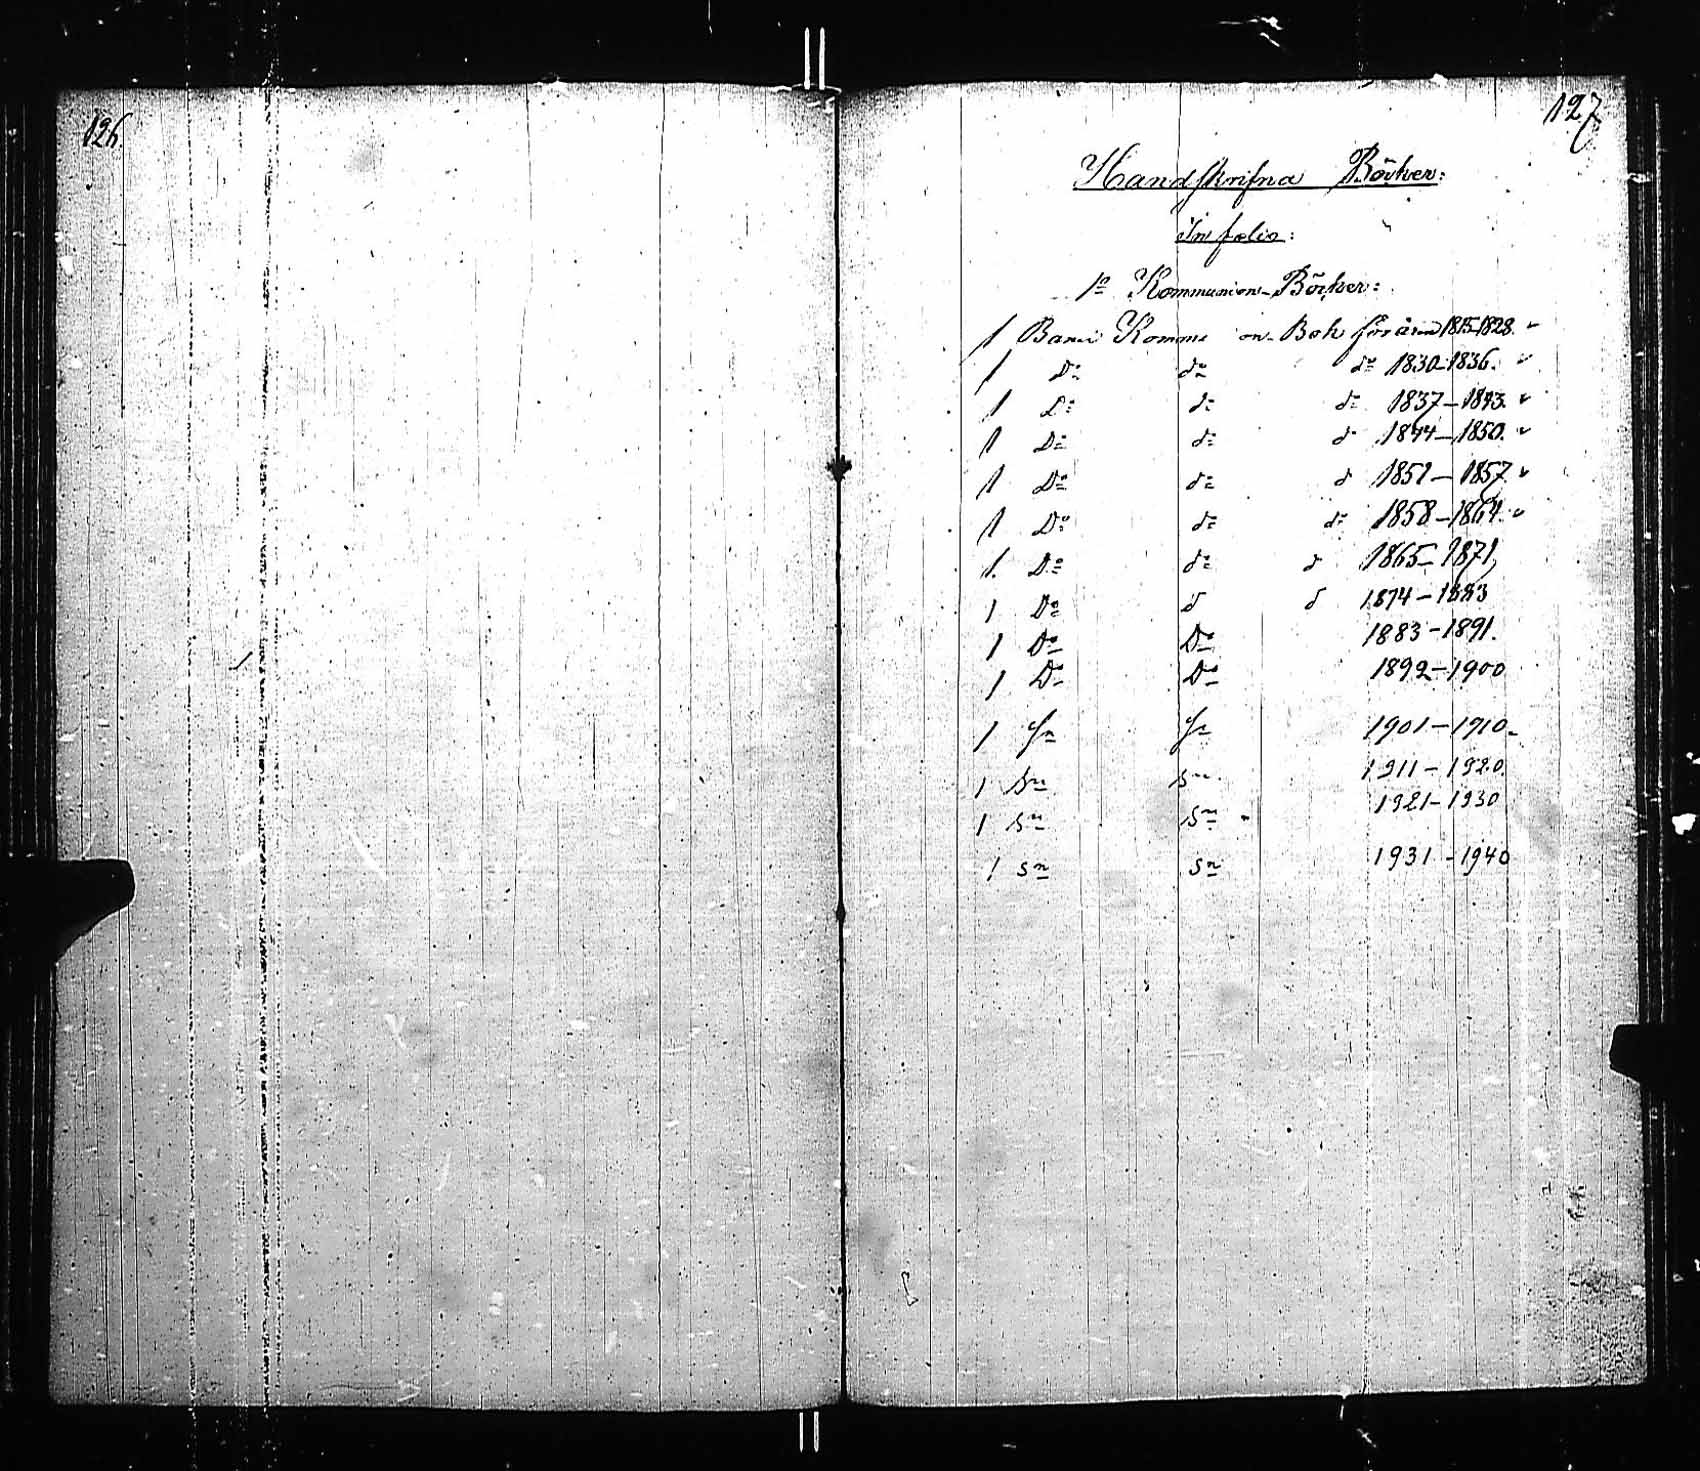 126.
127
Handskrifna Böcker:
In folio:
1o Kommunions-Böcker:
1 Band Kommu on-Bok för åren 1815-1828.
1 Do do do 1830-1836.
1 Do do do 1837-1843.
1 Do do d 1844-1850.
1 Do do d 1851-1857.
1 Do do do 1858-1864.
1. Do do d 1865-1871,
1 Do d d 1874-1883
1 Do Do 1883-1891.
1 Do Do 1892-1900
1 1901-1910-
1 Sn Sn 1911-1920.
1 Sn Sn 1921-1930
1 Sn Sn 1931-1940